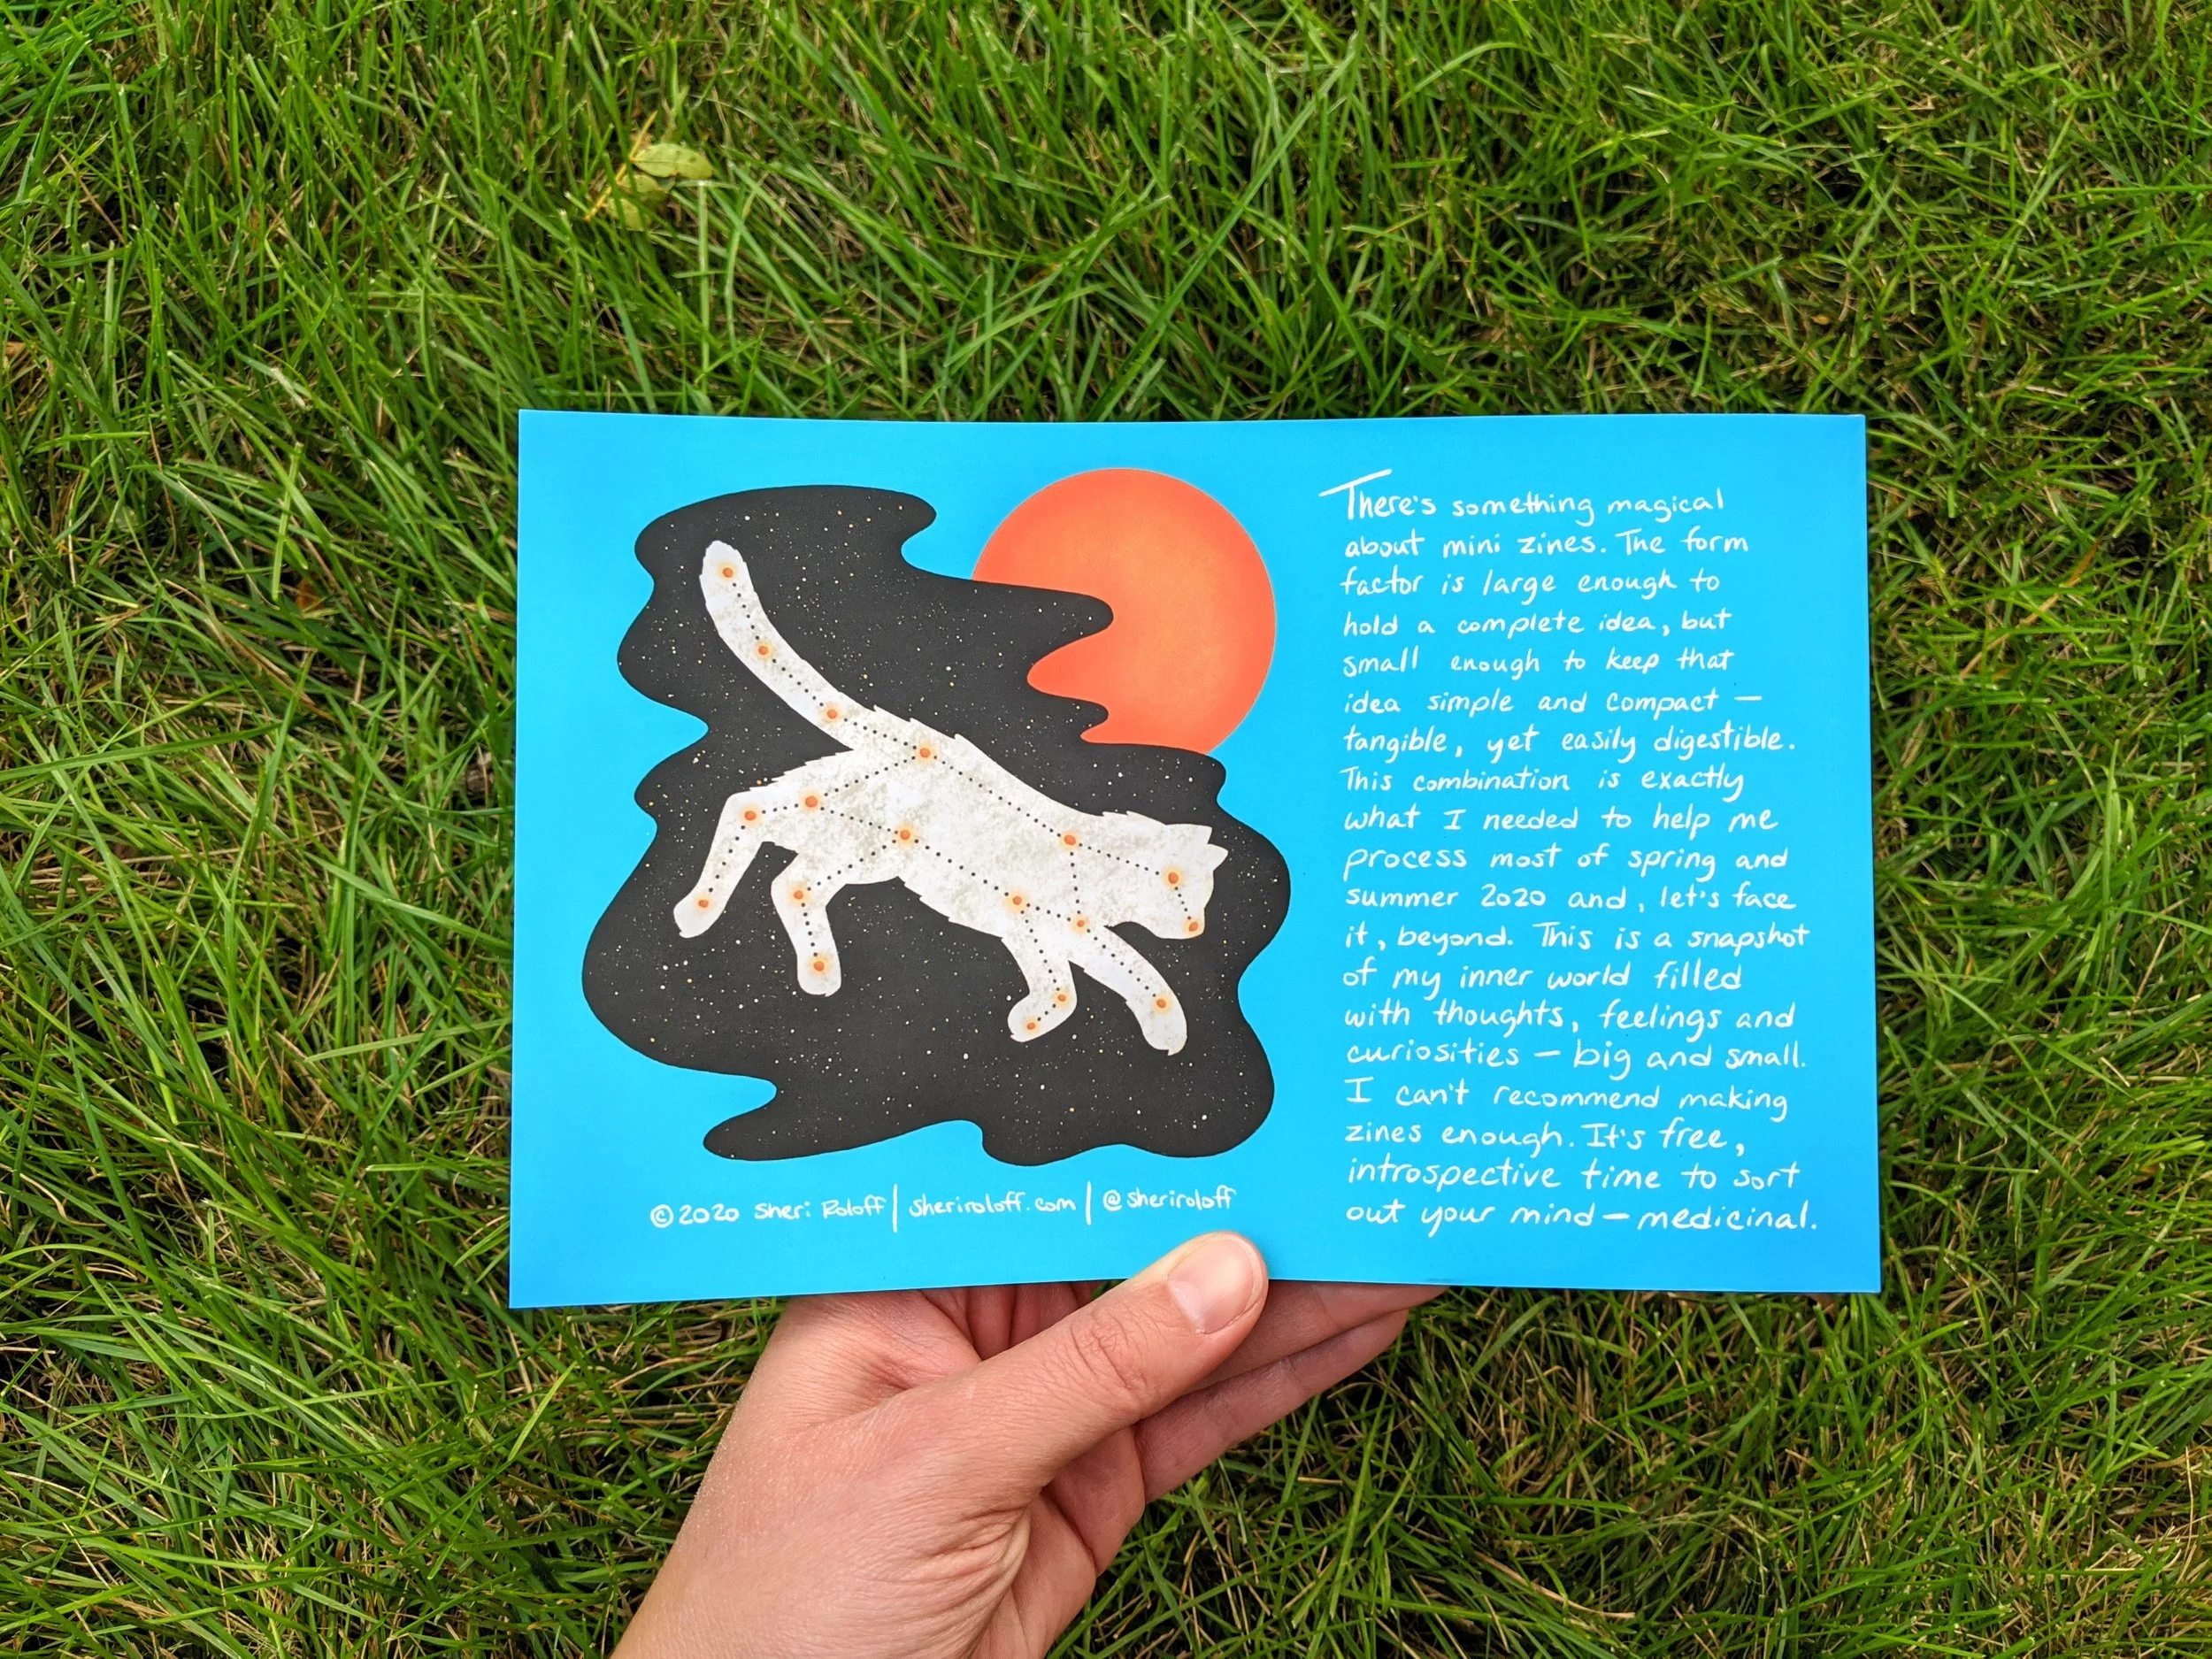 There's something magical
about mini zines. The form
factor is large enough to
hold a complete idea, but
small enough to keep that
idea simple and compact —
tangible, yet easily digestible.
This combination is exactly
what I needed to help me
process most of spring and
summer 2020 and, let's face
it, beyond. This is a snapshot
of my inner world filled
with thoughts, feelings and
curiosities — big and small.
I can't recommend making
zines enough. It's free,
introspective time to sort
out your mind — medicinal.
© 2020 Sheri Roloff | sheriroloff.com | @sheriroloff